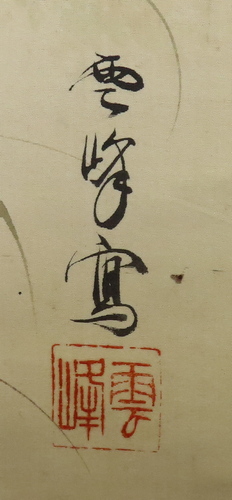 雲峰寫
雲峰